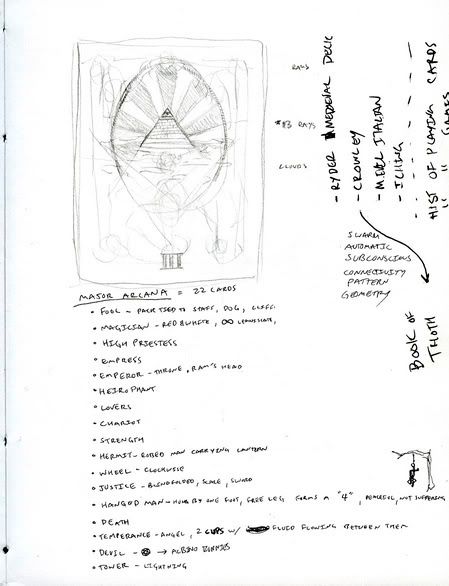 RAYS
13 RAYS
CLOUDS
III
- RYDER MEDIEVAL DECK
- CROWLEY
- ITALIAN
- ICHING
HIST OF PLAYING CARDS
" " GAMES
SWARM
AUTOMATIC
SUBCONSCIOUS
CONNECTIVITY
PATTERN
GEOMETRY
BOOK OF
THOTH
MAJOR ARCANA = 22 CARDS
• FOOL - PACK TIED TO STAFF, DOG, CLIFF
• MAGICIAN - RED & WHITE, ∞ LEMNISCATE,
• HIGH PRIESTESS
• EMPRESS
• EMPEROR - THRONE, RAM'S HEAD
• HEIROPHANT
• LOVERS
• CHARIOT
• STRENGTH
• HERMIT - ROBED MAN CARRYING LANTERN
• WHEEL - CLOCKWISE
• JUSTICE - BLINDFOLDED, SCALE, SWORD
• HANGED MAN - HUNG BY ONE FOOT, FREE LEG FORMS A "4", PEACEFUL, NOT SUFFERING
• DEATH
• TEMPERANCE - ANGEL, 2 CUPS W/ FLUID FLOWING BETWEEN THEM
• DEVIL - → ALBINO BUNNIES
• TOWER - LIGHTNING